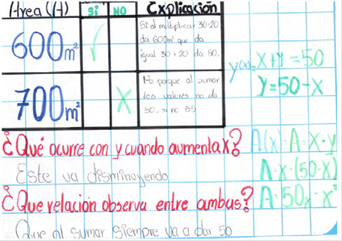 Area (A) SI NO Explicación
600m² ✓ Si al multiplicar 30·20
da 600m² que da
igual 30+20 da 50.
700m² X No porque al sumar
los valores no da
50, si no 89
y(x)= x+y=50
y=50-x
¿Qué ocurre con y cuando aumenta x?
Este va disminuyendo
¿Que relación observa entre ambas?
Que al sumar siempre va a dar 50
A(x)=A=x·y
A=x·(50-x)
A=50x-x²